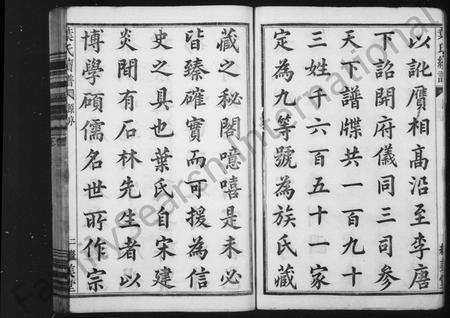 以訛贗相高沿至李唐
下詔開府儀同三司參
天下譜牒共一百九十
三姓千六百五十一家
定為九等號為族氏藏
藏之秘閣噫嘻是未必
皆臻確實而可援為信
史之具也葉氏自宋建
炎間有石林先生者以
博學碩儒名世所作宗